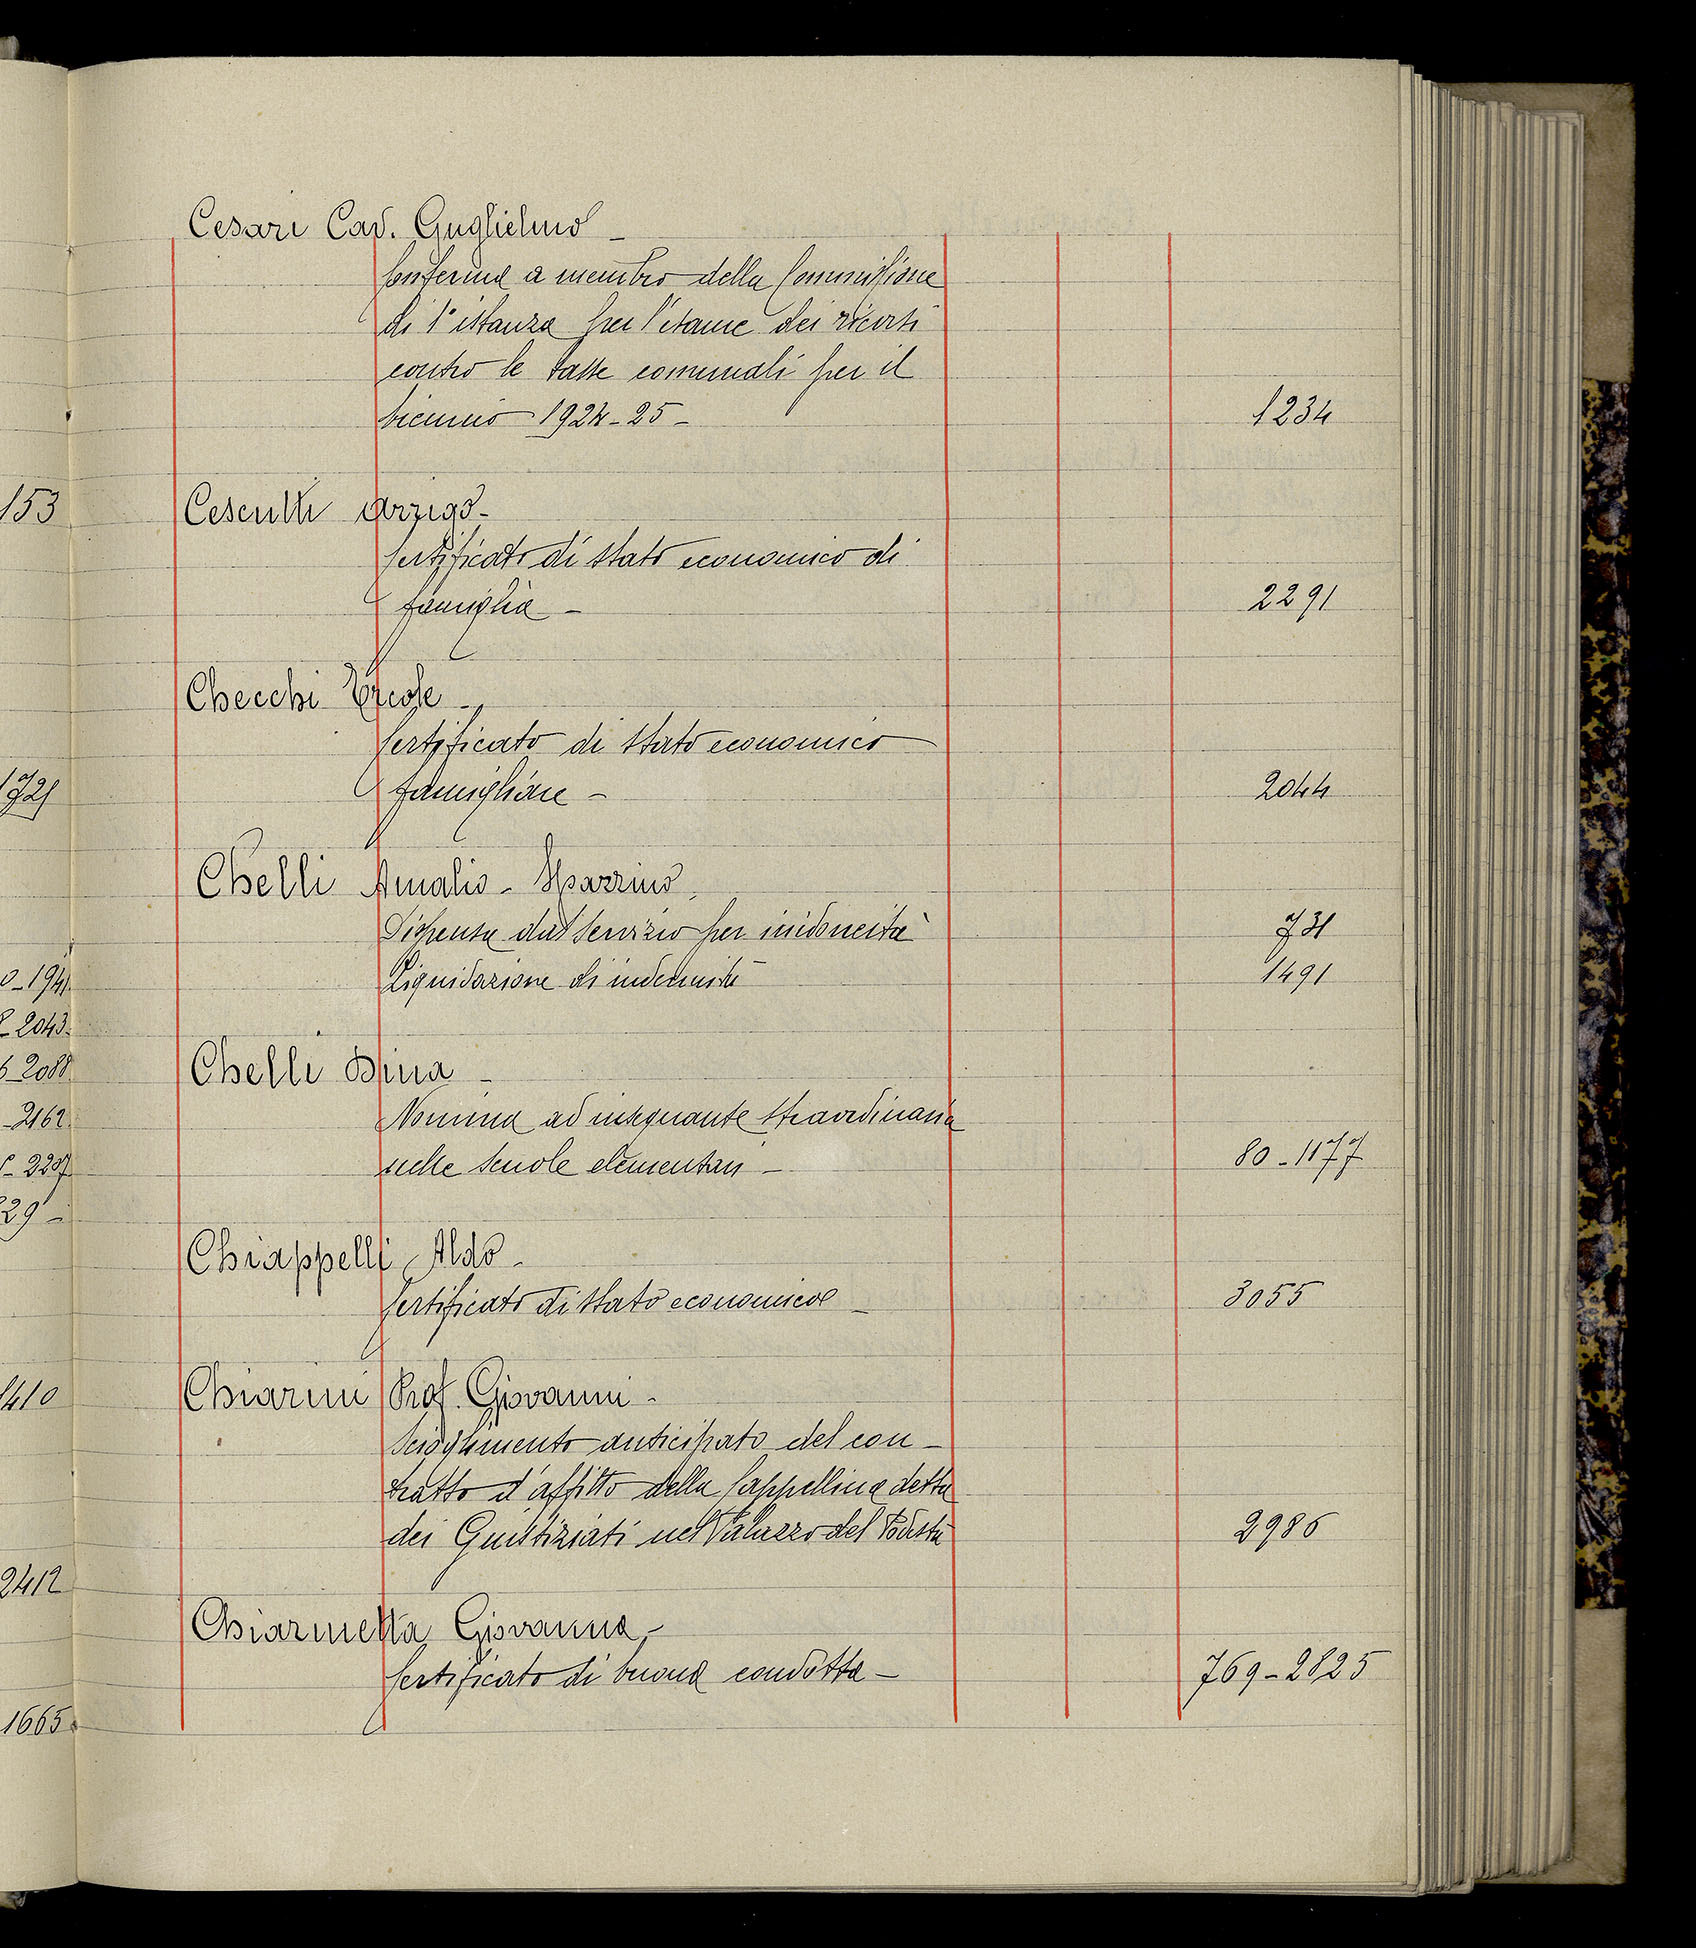 Cesari Cav. Guglielmo -
Conferma a membro della Commissione
di 1ª istanza per l'esame dei ricorsi
contro le tasse comunali per il
biennio 1924-25 -
1234
153
Cescutti Arrigo -
Certificato di stato economico di
famiglia -
2291
Checchi Ercole -
Certificato di stato economico
famigliare -
2044
1721
Chelli Amalio - Spazzino
Dispensa dal servizio per inidoneità
731
Liquidazione di indennità
1491
0-1941
2043
2088
Chelli Dina -
Nomina ad insegnante straordinaria
2162
nelle scuole elementari -
80-1177
2207
29 -
Chiappelli Aldo -
Certificato di stato economico -
3055
1410
Chiarini Prof. Giovanni -
Scioglimento anticipato del con-
tratto d'affitto della Cappellina detta
dei Giustiziati nel Palazzo del Podestà
2986
2412
Chiarinetta Giovanna -
Certificato di buona condotta -
769-2825
1665